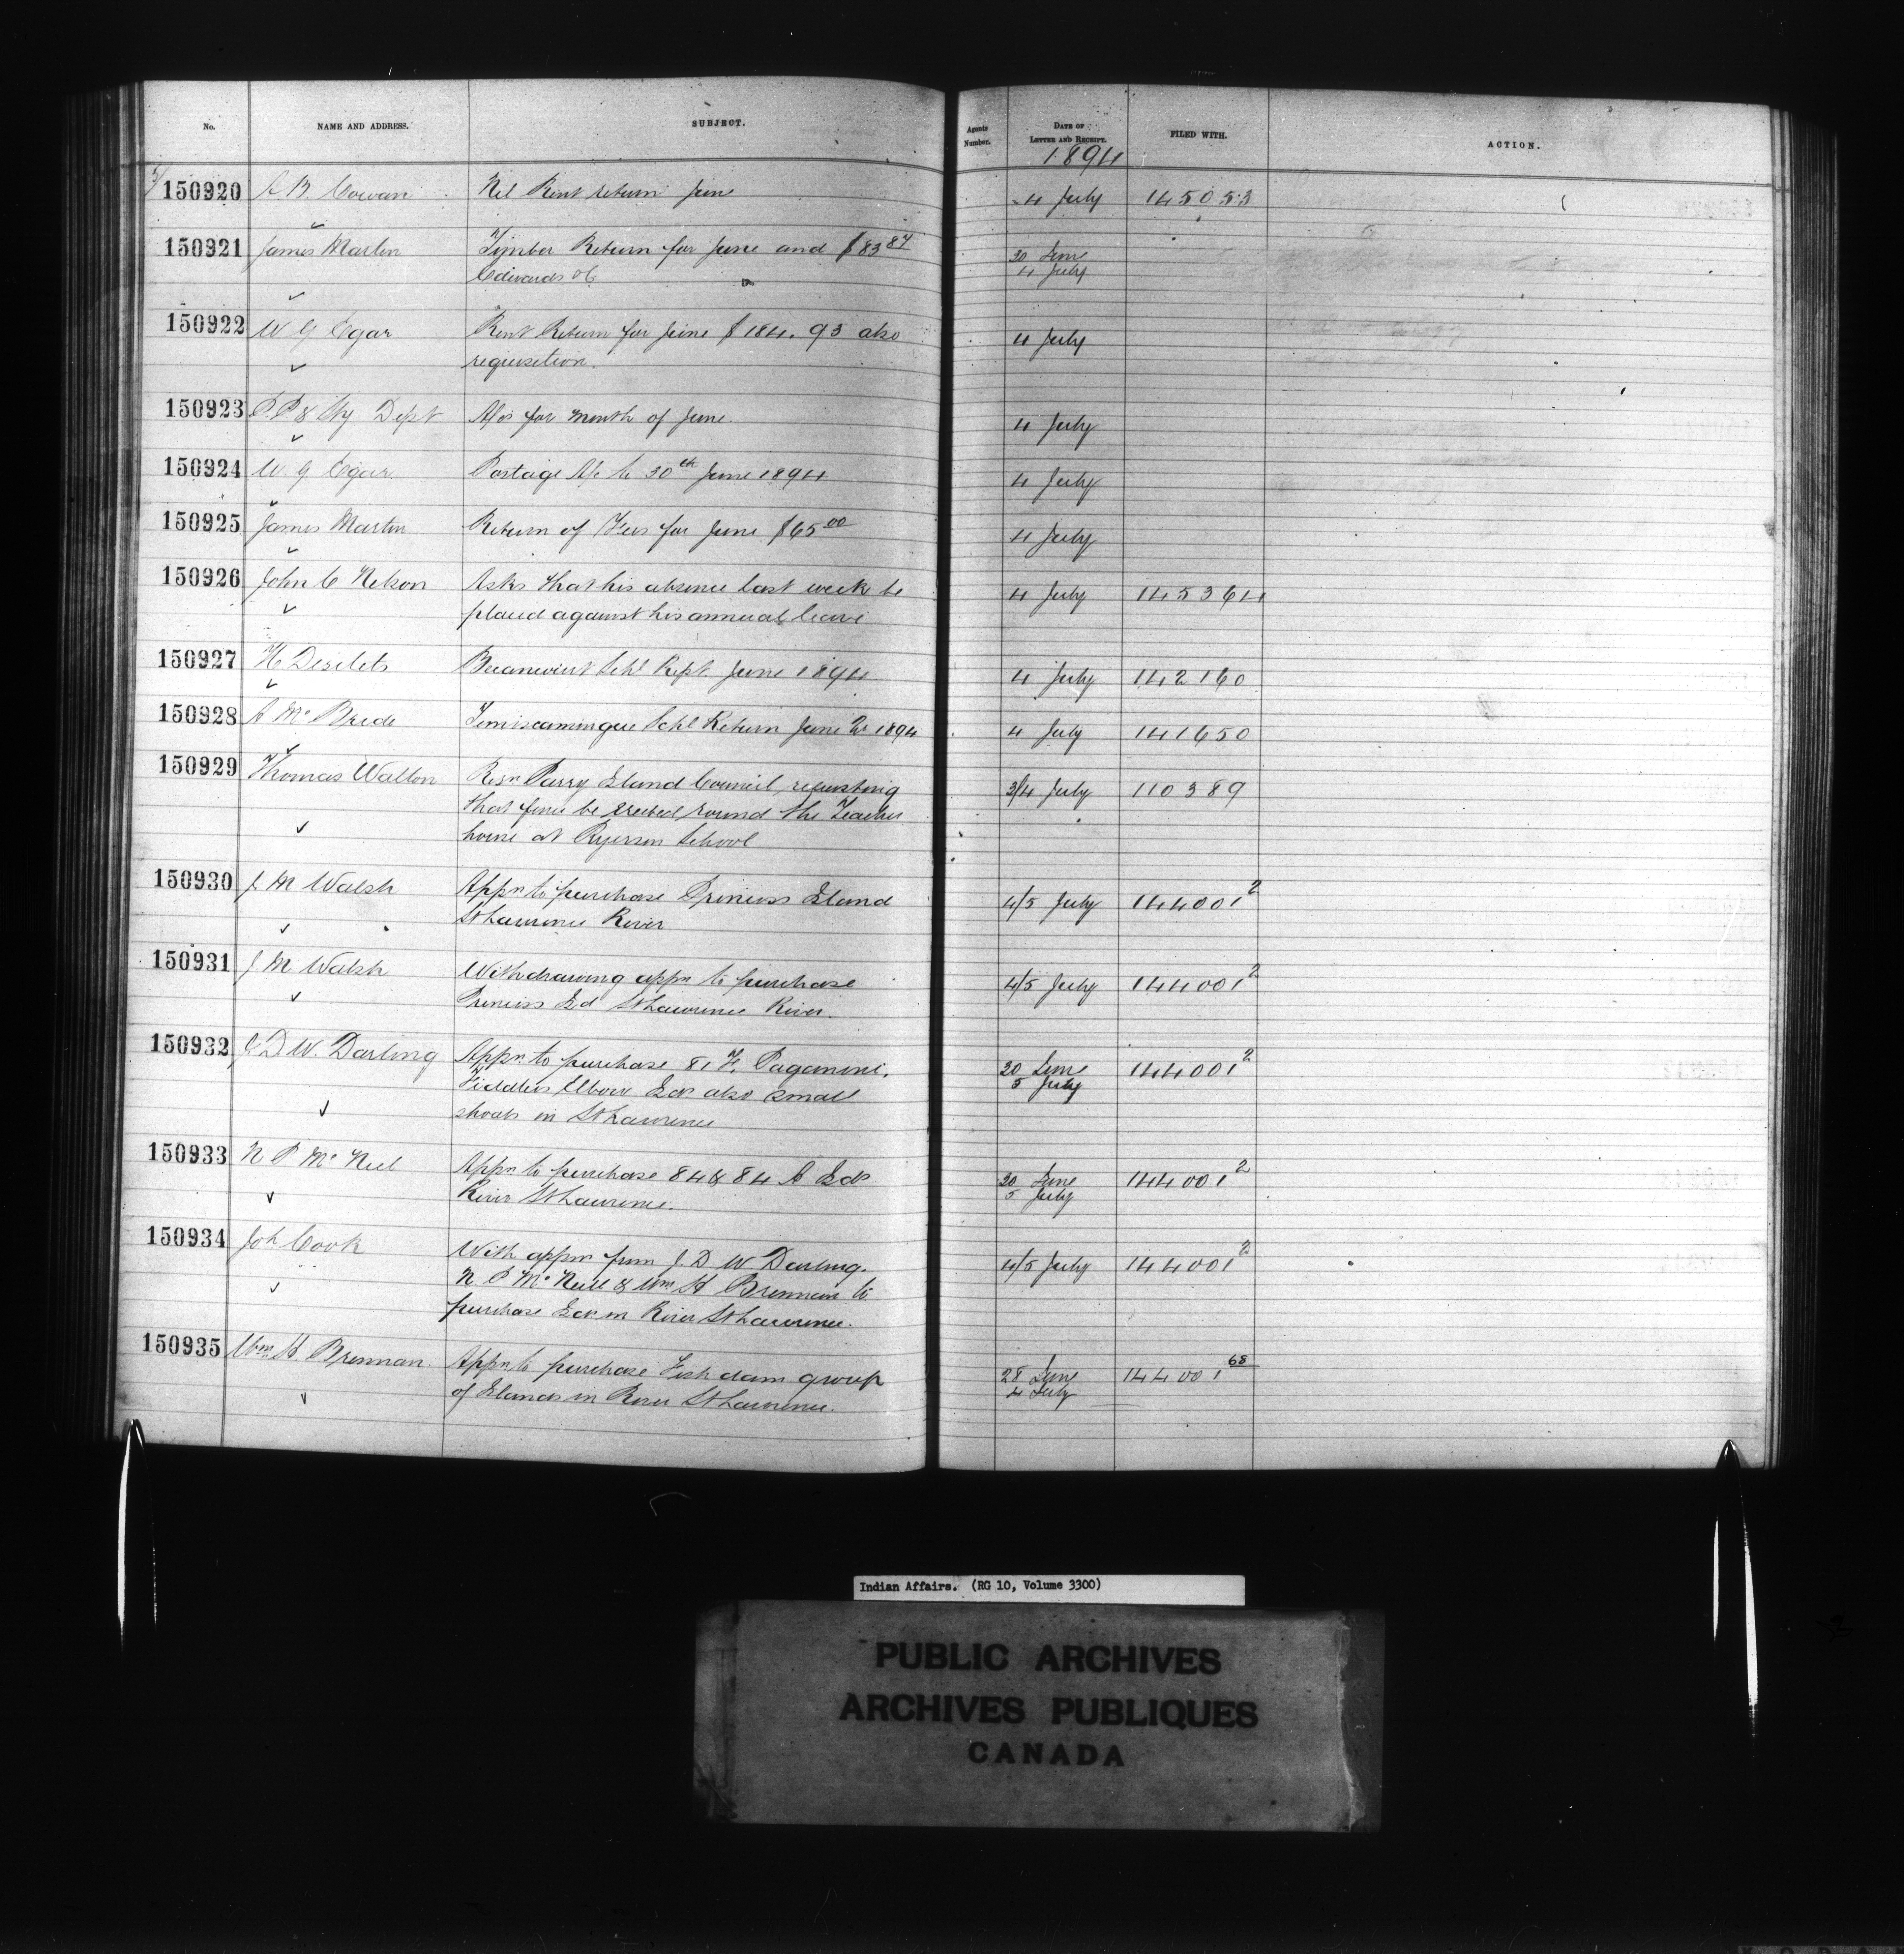 No. NAME AND ADDRESS. SUBJECT. Agents Number. DATE OF LETTER AND RECEIPT. FILED WITH. ACTION.
1894
150920 A B. Cowan Nil Rent return June 4 July 145053
150921 James Martin Timber Return for June and $83 87 30 June
Edwards 4 July
150922 W G Egar Rent Return for June $184.93 also 4 July
requisition.
150923 P.P & Sty Dept A/cs for month of June. 4 July
150924 W. G Egar Postage A/c to 30th June 1894 4 July
150925 James Martin Return of Fees for June $65 00 4 July
150926 John C Nelson Asks that his absence last week be 4 July 145364
placed against his annual leave
150927 H Desilets Becancourt Schl Rept. June 1894 4 July 142160
150928 A McBride Temiscamingue Schl Return June Qr 1894 4 July 141650
150929 Thomas Walton Resn Parry Island Council, requesting 3/4 July 110389
that fence be erected round the Teachers
house at Ryerson School
150930 J M Walsh Appn to purchase Princess Island 4/5 July 144001 2
St Lawrence River
150931 J M Walsh Withdrawing appn to purchase 4/5 July 144001 2
Princess Id St Lawrence River.
150932 J D W. Darling Appn. to purchase 81 F. Paganini, 20 June 144001 2
Fiddlers Elbow Ids also small 5 July
shoals in St Lawrence
150933 N P McNeil Appn to purchase 84 & 84 A Ids 20 June 144001 2
River St Lawrence. 5 July
150934 Joh Cook With appns from J. D W Darling. 4/5 July 144001 2
N P McNeill & Wm H Brennan to
purchase Ids in River St Lawrence.
150935 Wm H Brennan Appn to purchase Fish dam group 28 June 144001 68
of Islands in River St Lawrence. 4 July
Indian Affairs. (RG 10, Volume 3300)
PUBLIC ARCHIVES
ARCHIVES PUBLIQUES
CANADA